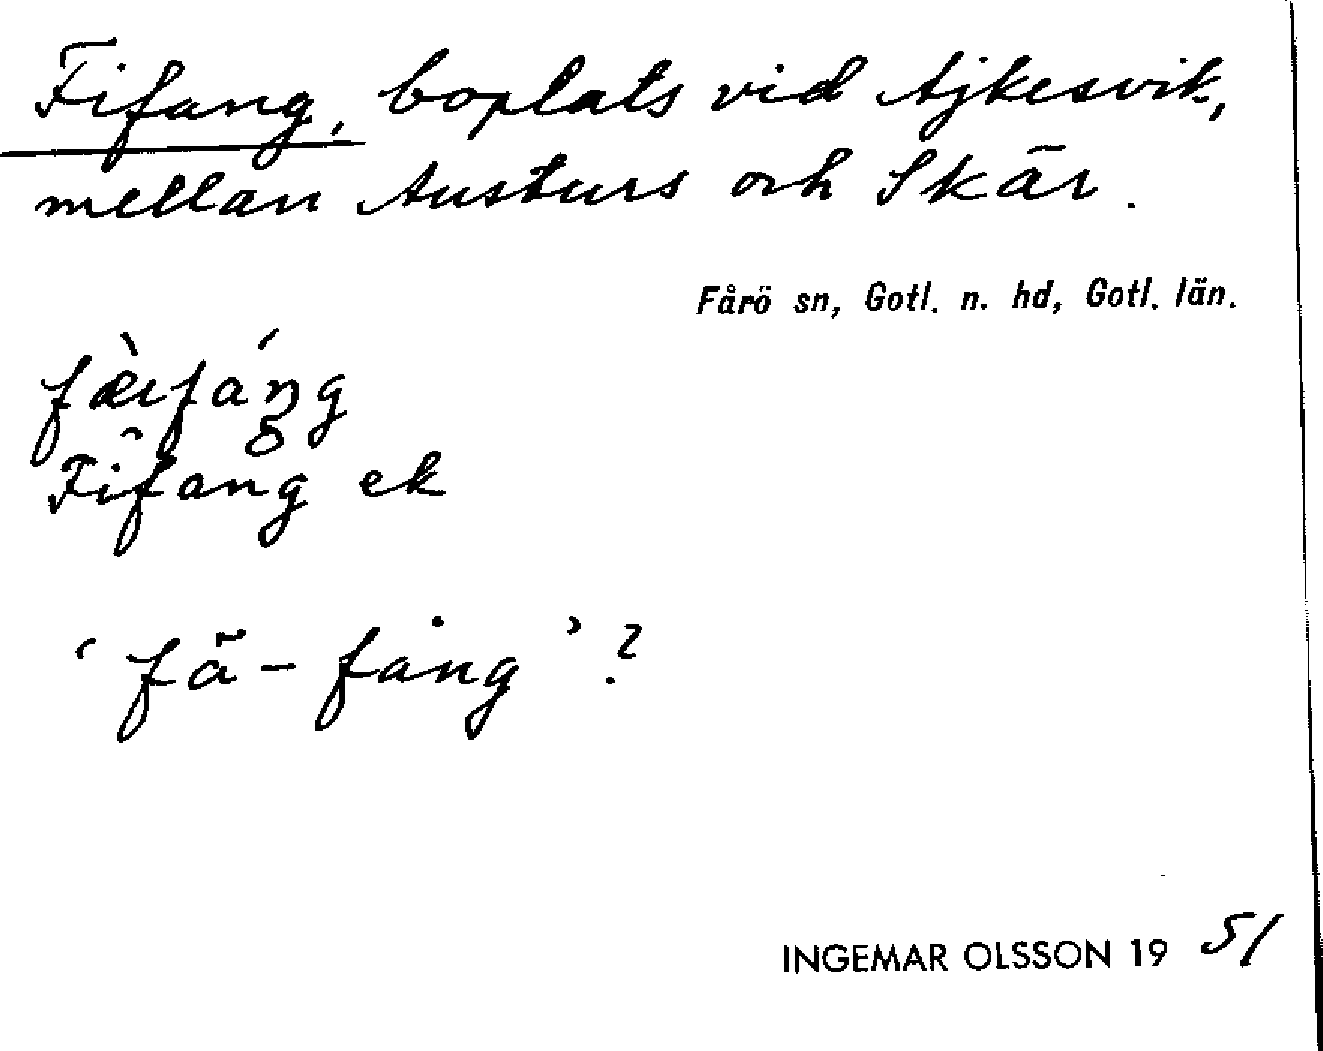 Fifang, boplats vid Ajkesvik,
mellan Austurs och Skär.
Fårö sn, Gotl. n. hd, Gotl. län.
fæ̀ifáŋg
Fifang ek
‘ fä – fång ’ ?
INGEMAR OLSSON 19 51